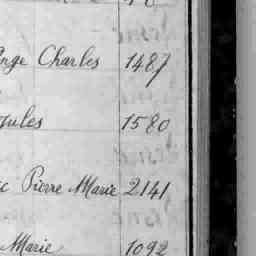 Ange Charles 1487
Jules 1580
Pierre Marie 2141
Marie 1092